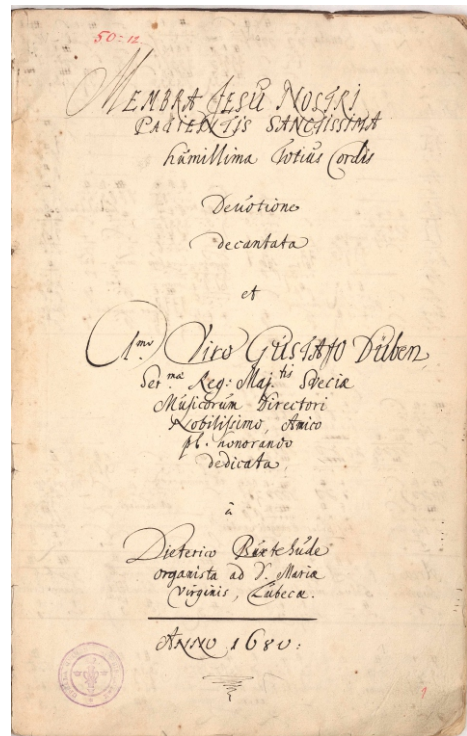 50:12.
MEMBRA JESU NOSTRI
PATIENTIS SANCTISSIMA
humillima totius Cordis
Devotione
decantata
et
Viro GUSTAVO Düben,
Ser.mæ Reg: Maj.tis Sveciæ
Musicorum Directori
Nobilissimo, Amico
pl. honorando
dedicata
à
Dieterico Buxtehude
organista ad S. Mariæ
Virginis, Lubecæ.
ANNO 1680:
1